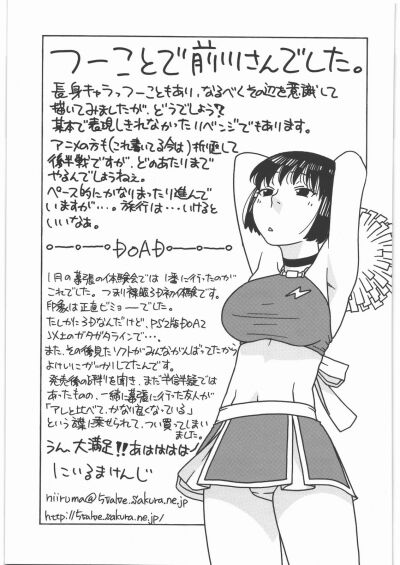 つーことで前川さんでした。
長身キャラっつーこともあり、なるべくその辺を意識して
描いてみましたが、どうでしょう?
基本で表現しきれなかったリベンジでもあります。
アニメの方も(これ書いてる今は)折返して
後半戦ですが、どのあたりまで
やるんでしょうねぇ。
ペース的にかなりまったり進んで
いますが…。旅行は…いけると
いいなぁ。
DOAD
1月の幕張の体験会では1番に行ったのが
これでした。つまり裸眼3D初体験です。
印象は正直ビミョーでした。
たしかに3Dなんだけど、PS2版DOA2
以上のガタガタラインで…。
また、その後見たソフトがみんながんばってたから
よけいにがっかりしてたんです。
発売後の評判を聞き、まだ半信半疑では
あったものの、一緒に幕張に行った友人が
「アレと比べて、かなり良くなっている」
という譲に乗せられて、つい買ってしまい
ました。
うん、大満足!!あはははは!
にいるまけんじ
niiruma@5tabe.sakura.ne.jp
http://5tabe.sakura.ne.jp/